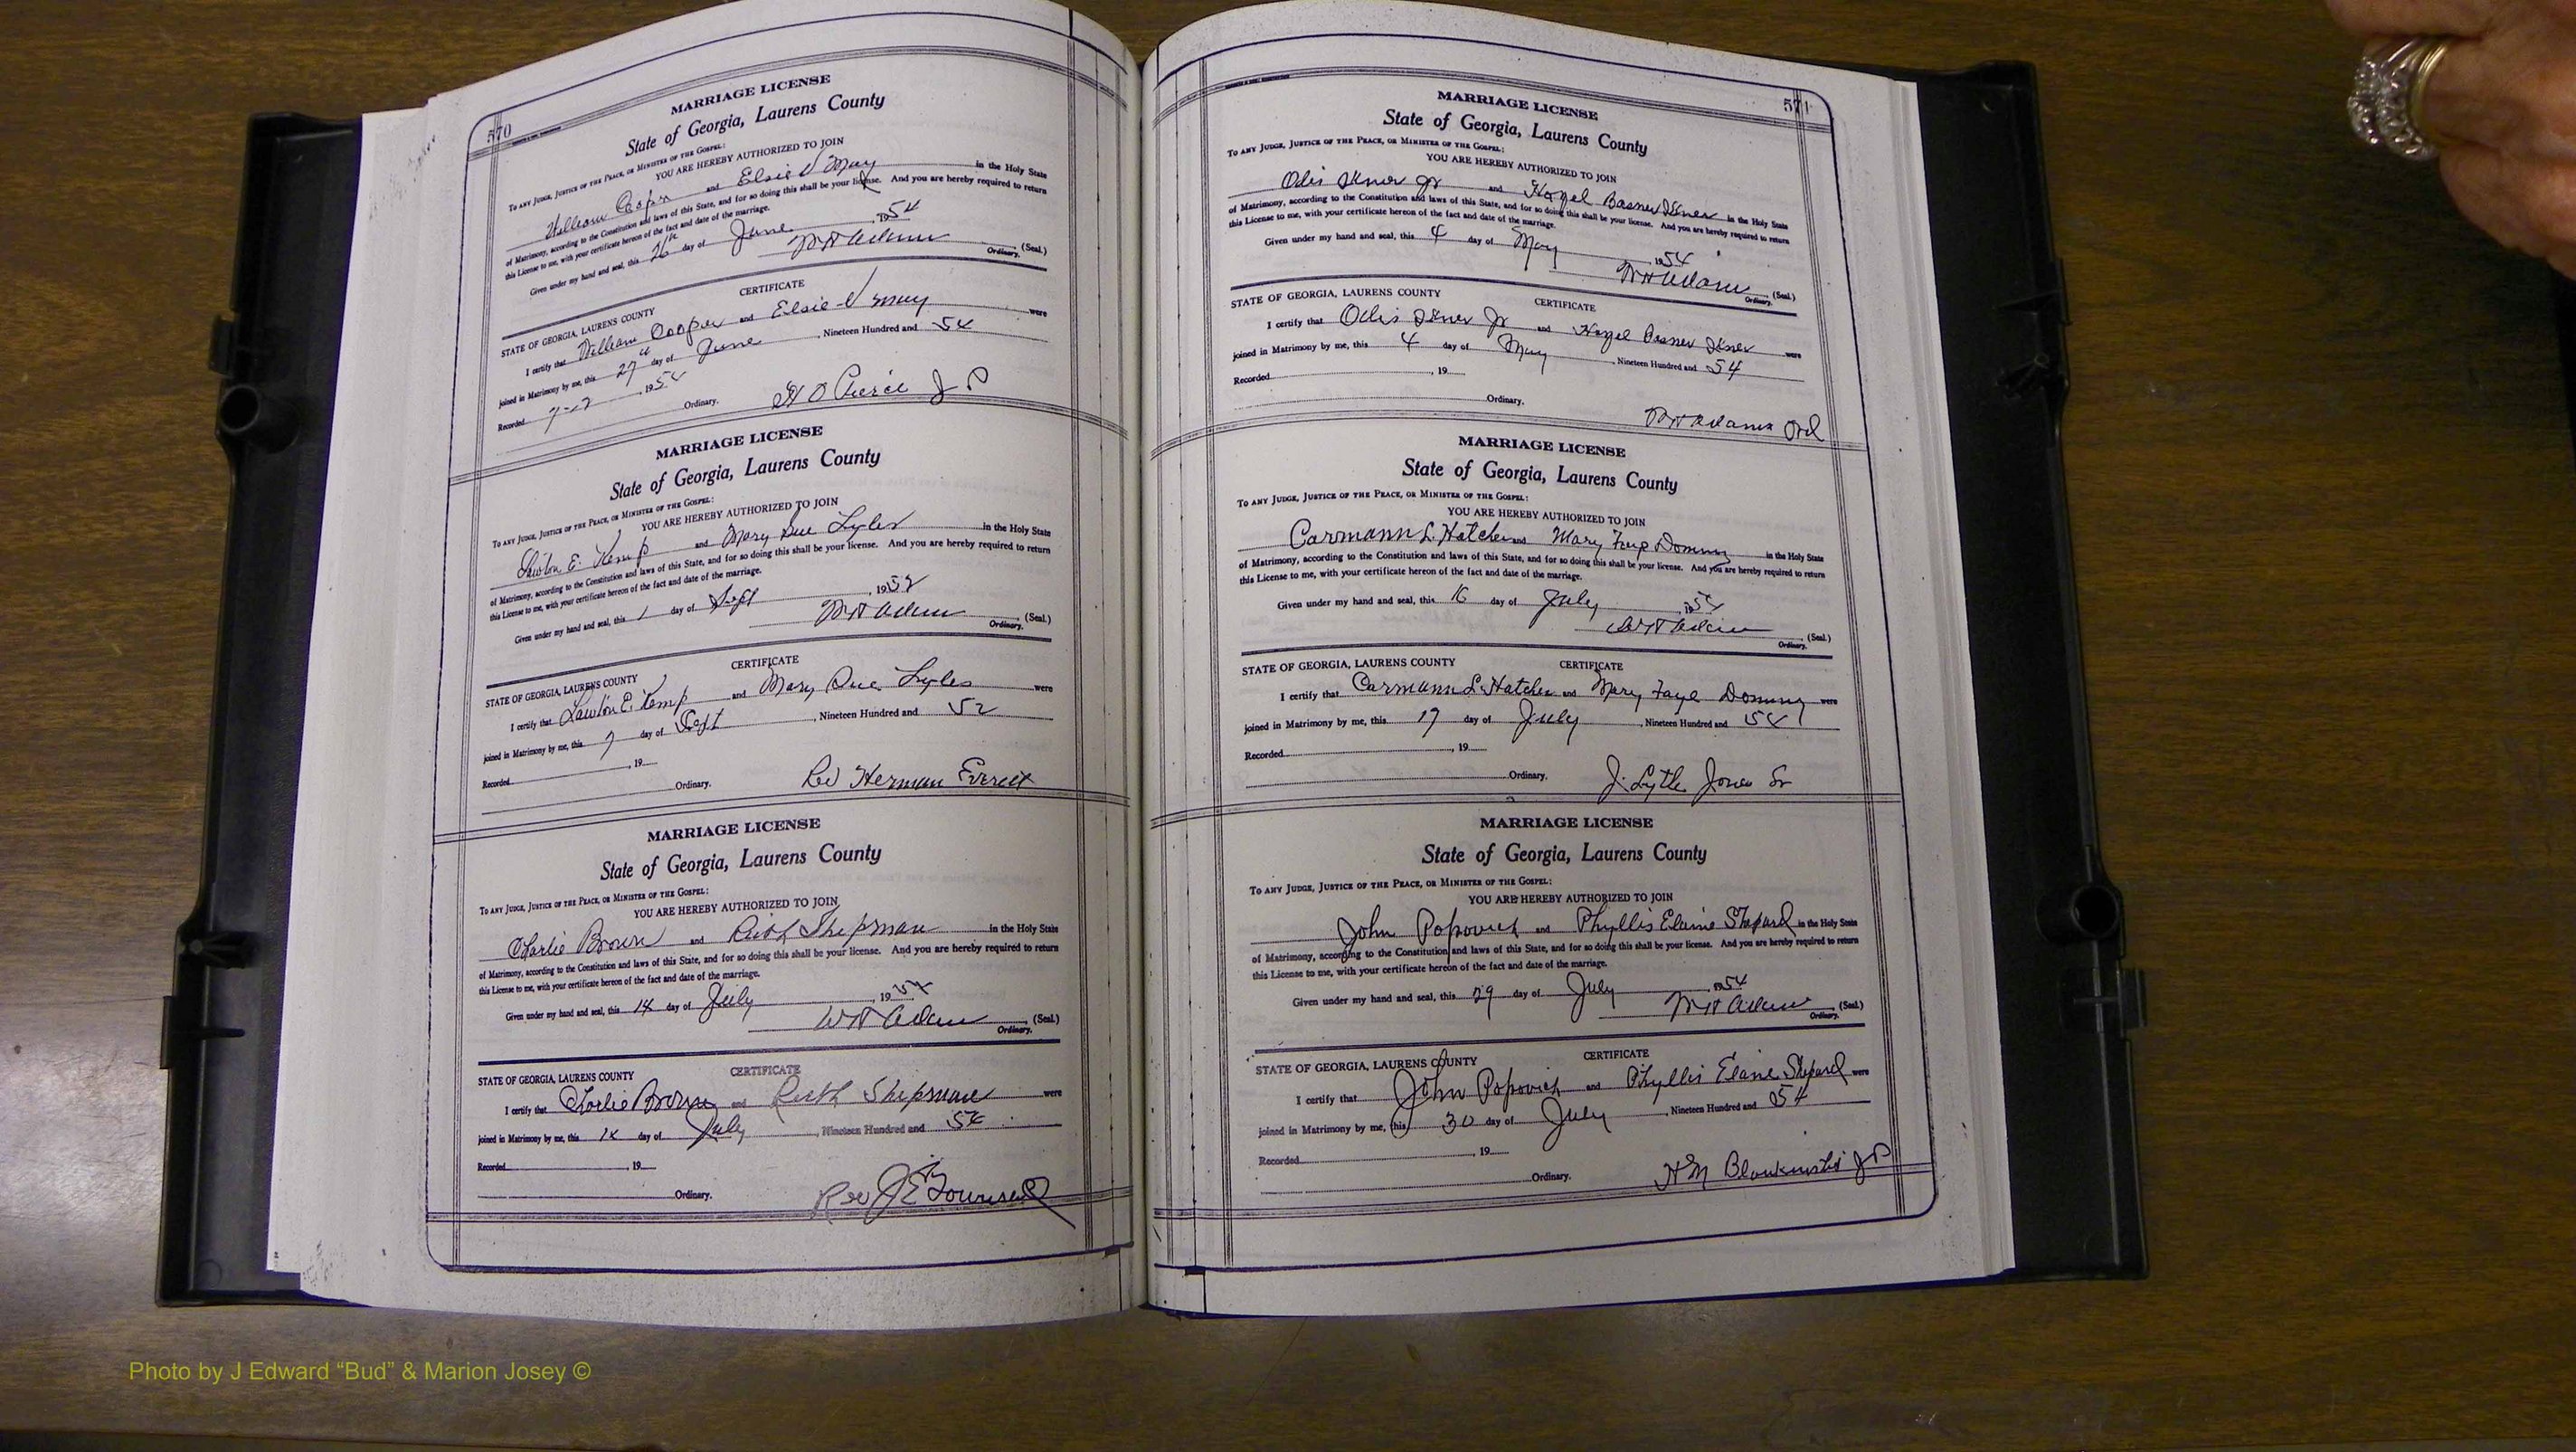 570
MARRIAGE LICENSE
State of Georgia, Laurens County
To any Judge, Justice of the Peace, or Minister of the Gospel:
YOU ARE HEREBY AUTHORIZED TO JOIN
William Cooper and Elsie V May in the Holy State
of Matrimony, according to the Constitution and laws of this State, and for so doing this shall be your license. And you are hereby required to return
this License to me, with your certificate hereon of the fact and date of the marriage.
Given under my hand and seal, this 26th day of June, 1954
WH Adams (Seal.)
Ordinary.
CERTIFICATE
STATE OF GEORGIA, LAURENS COUNTY
I certify that William Cooper and Elsie V May were
joined in Matrimony by me, this 27th day of June, Nineteen Hundred and 54
Recorded 7-12, 1954
Ordinary. H O Pierce J P
MARRIAGE LICENSE
State of Georgia, Laurens County
To any Judge, Justice of the Peace, or Minister of the Gospel:
YOU ARE HEREBY AUTHORIZED TO JOIN
Lawton E. Kemp and Mary Sue Lyles in the Holy State
of Matrimony, according to the Constitution and laws of this State, and for so doing this shall be your license. And you are hereby required to return
this License to me, with your certificate hereon of the fact and date of the marriage.
Given under my hand and seal, this 1 day of Sept, 1952
WH Adams (Seal.)
Ordinary.
CERTIFICATE
STATE OF GEORGIA, LAURENS COUNTY
I certify that Lawton E. Kemp and Mary Sue Lyles were
joined in Matrimony by me, this 7 day of Sept, Nineteen Hundred and 52
Recorded, 19
Ordinary. Rev Herman Everett
MARRIAGE LICENSE
State of Georgia, Laurens County
To any Judge, Justice of the Peace, or Minister of the Gospel:
YOU ARE HEREBY AUTHORIZED TO JOIN
Charlie Brown and Ruth Shepman in the Holy State
of Matrimony, according to the Constitution and laws of this State, and for so doing this shall be your license. And you are hereby required to return
this License to me, with your certificate hereon of the fact and date of the marriage.
Given under my hand and seal, this 14 day of July, 1954
WH Adams (Seal.)
Ordinary.
CERTIFICATE
STATE OF GEORGIA, LAURENS COUNTY
I certify that Charlie Brown and Ruth Shepman were
joined in Matrimony by me, this 14 day of July, Nineteen Hundred and 54
Recorded, 19
Ordinary. Rev J E Townsend
571
MARRIAGE LICENSE
State of Georgia, Laurens County
To any Judge, Justice of the Peace, or Minister of the Gospel:
YOU ARE HEREBY AUTHORIZED TO JOIN
Odis Jr and Hazel in the Holy State
of Matrimony, according to the Constitution and laws of this State, and for so doing this shall be your license. And you are hereby required to return
this License to me, with your certificate hereon of the fact and date of the marriage.
Given under my hand and seal, this 4 day of May, 1954
WH Adams (Seal.)
Ordinary.
CERTIFICATE
STATE OF GEORGIA, LAURENS COUNTY
I certify that Odis Jr and Hazel were
joined in Matrimony by me, this 4 day of May, Nineteen Hundred and 54
Recorded, 19
Ordinary.
WH Adams Ord
MARRIAGE LICENSE
State of Georgia, Laurens County
To any Judge, Justice of the Peace, or Minister of the Gospel:
YOU ARE HEREBY AUTHORIZED TO JOIN
Carmann L. Hatcher and Mary Faye Dominy in the Holy State
of Matrimony, according to the Constitution and laws of this State, and for so doing this shall be your license. And you are hereby required to return
this License to me, with your certificate hereon of the fact and date of the marriage.
Given under my hand and seal, this 16 day of July, 1954
WH Adams (Seal.)
Ordinary.
CERTIFICATE
STATE OF GEORGIA, LAURENS COUNTY
I certify that Carmann L. Hatcher and Mary Faye Dominy were
joined in Matrimony by me, this 17 day of July, Nineteen Hundred and 54
Recorded, 19
Ordinary. J. Lytle Jones Sr
MARRIAGE LICENSE
State of Georgia, Laurens County
To any Judge, Justice of the Peace, or Minister of the Gospel:
YOU ARE HEREBY AUTHORIZED TO JOIN
John Popovich and Phyllis Elaine Shepard in the Holy State
of Matrimony, according to the Constitution and laws of this State, and for so doing this shall be your license. And you are hereby required to return
this License to me, with your certificate hereon of the fact and date of the marriage.
Given under my hand and seal, this 29 day of July, 1954
WH Adams (Seal.)
Ordinary.
CERTIFICATE
STATE OF GEORGIA, LAURENS COUNTY
I certify that John Popovich and Phyllis Elaine Shepard were
joined in Matrimony by me, this 30 day of July, Nineteen Hundred and 54
Recorded, 19
Ordinary. H M JP
Photo by J Edward “Bud” & Marion Josey ©